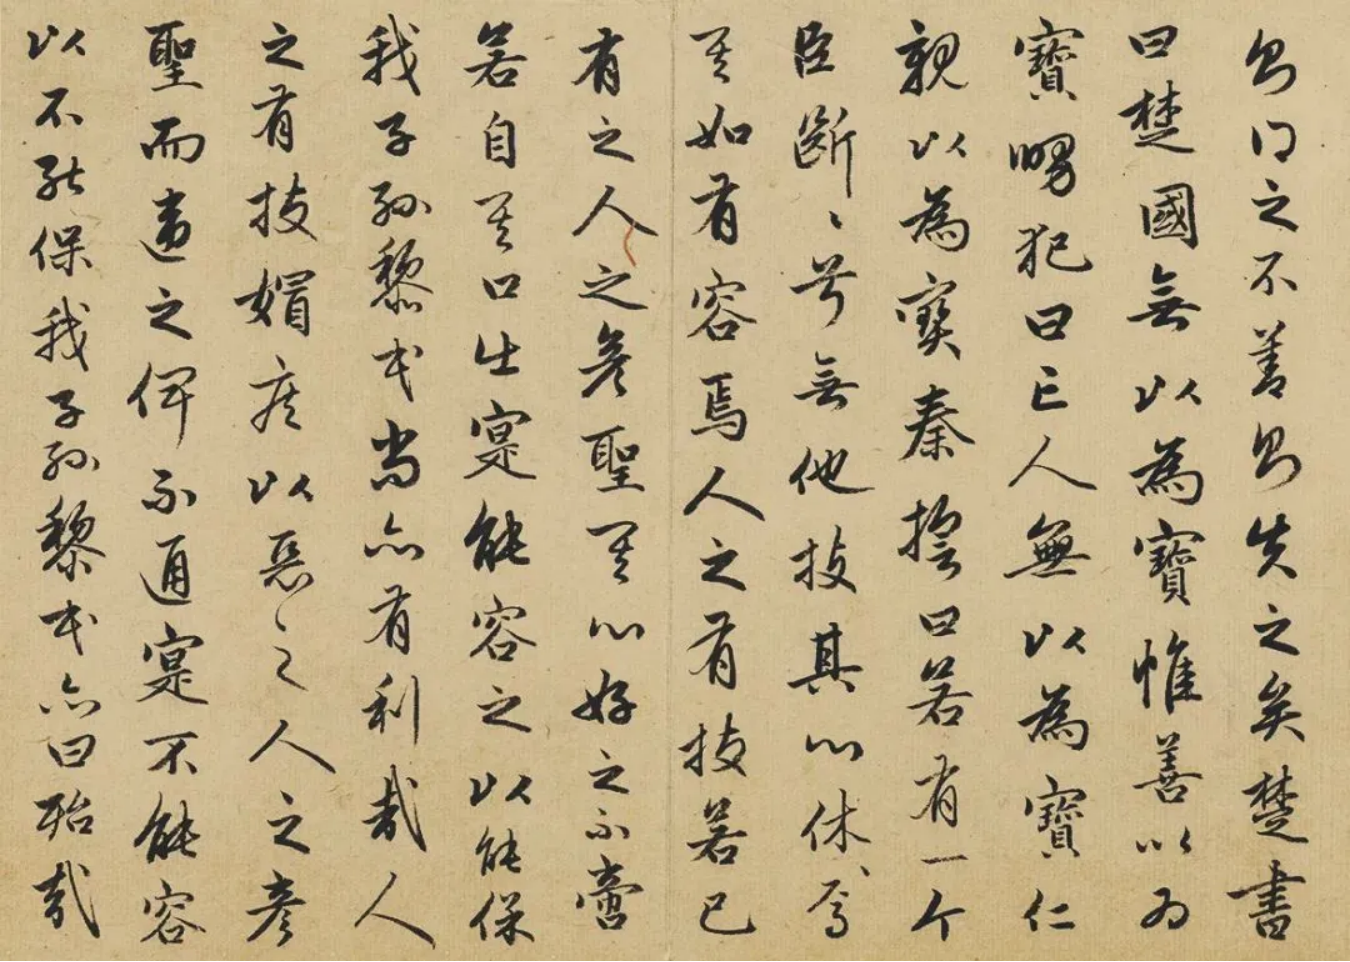 則得之不善則失之矣楚書
曰楚國無以為寶惟善以為
寶舅犯曰亡人無以為寶仁
親以為寶秦誓曰若有一个
臣斷〻兮無他技其心休〻焉
其如有容焉人之有技若己
有之人之彥聖其心好之不啻
若自其口出寔能容之以能保
我子孫黎民尚亦有利哉人
之有技媢疾以惡之人之彥
聖而違之俾不通寔不能容
以不能保我子孫黎民亦曰殆哉